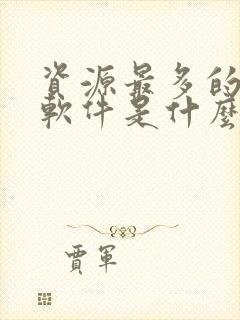 資源最多的
軟件是什麼
賈軍